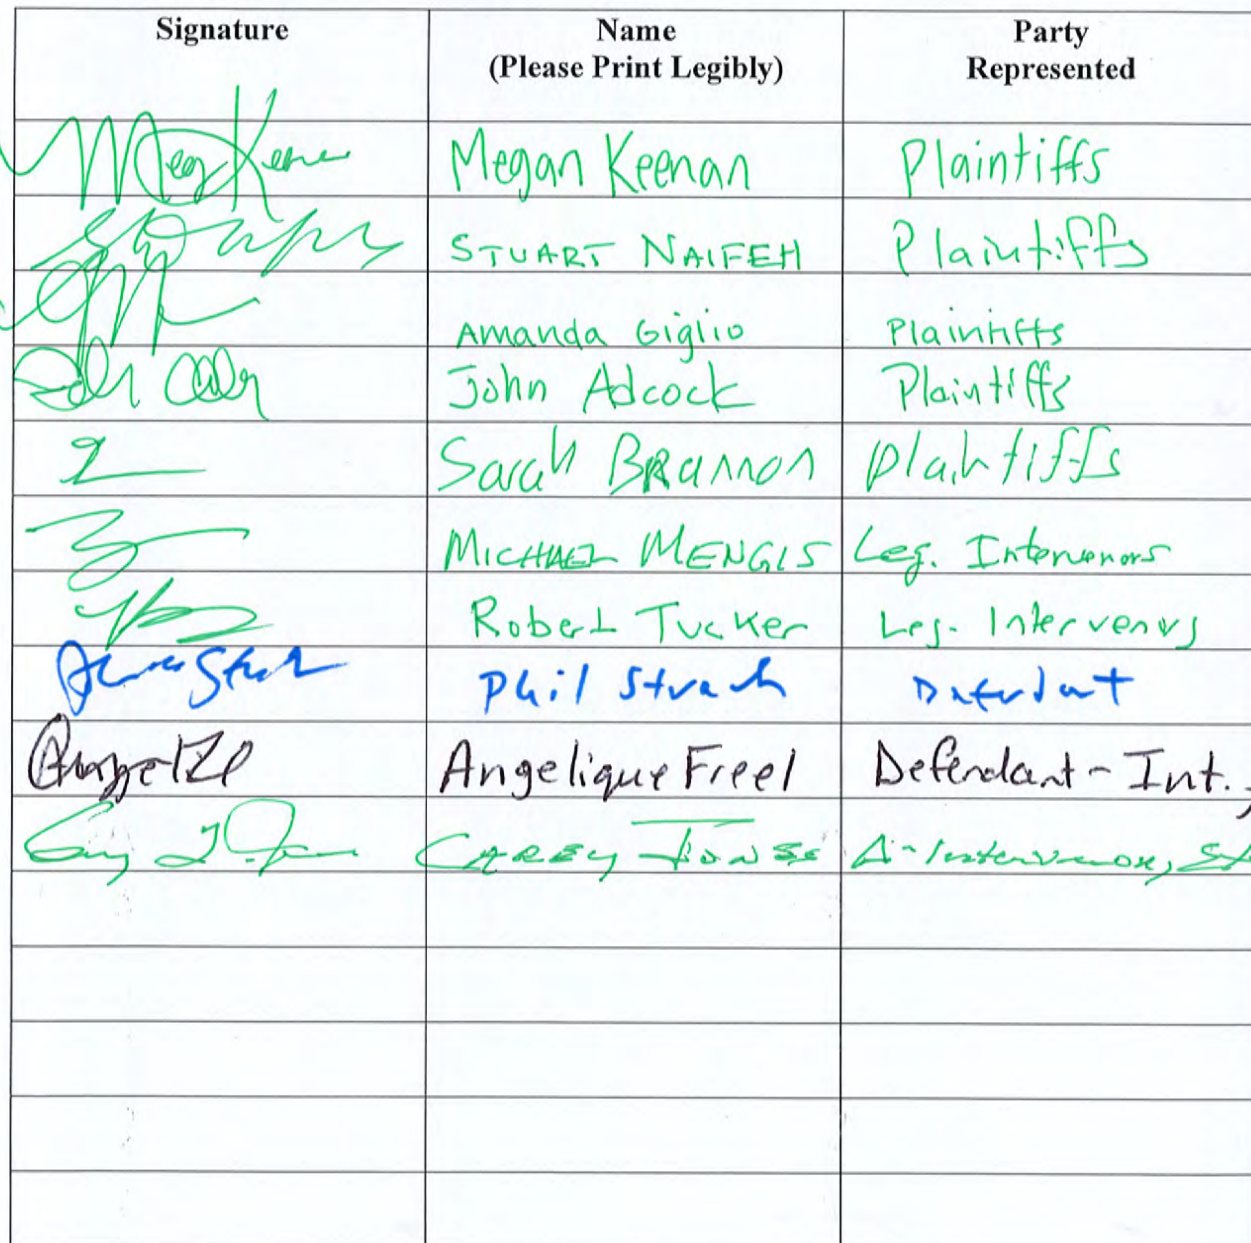 Signature Name Party
(Please Print Legibly) Represented
Meg Keenan Megan Keenan Plaintiffs
STUART NAIFEH Plaintiffs
Amanda Giglio Plaintiffs
John Adcock Plaintiffs
Sarah BRannon Plaintiffs
MICHAEL MENGIS Leg. Intervenors
Robert Tucker Leg. Intervenors
Phil Strach Defendant
Angelique Freel Defendant - Int.,
CAREY JONES Δ-Intervenor,